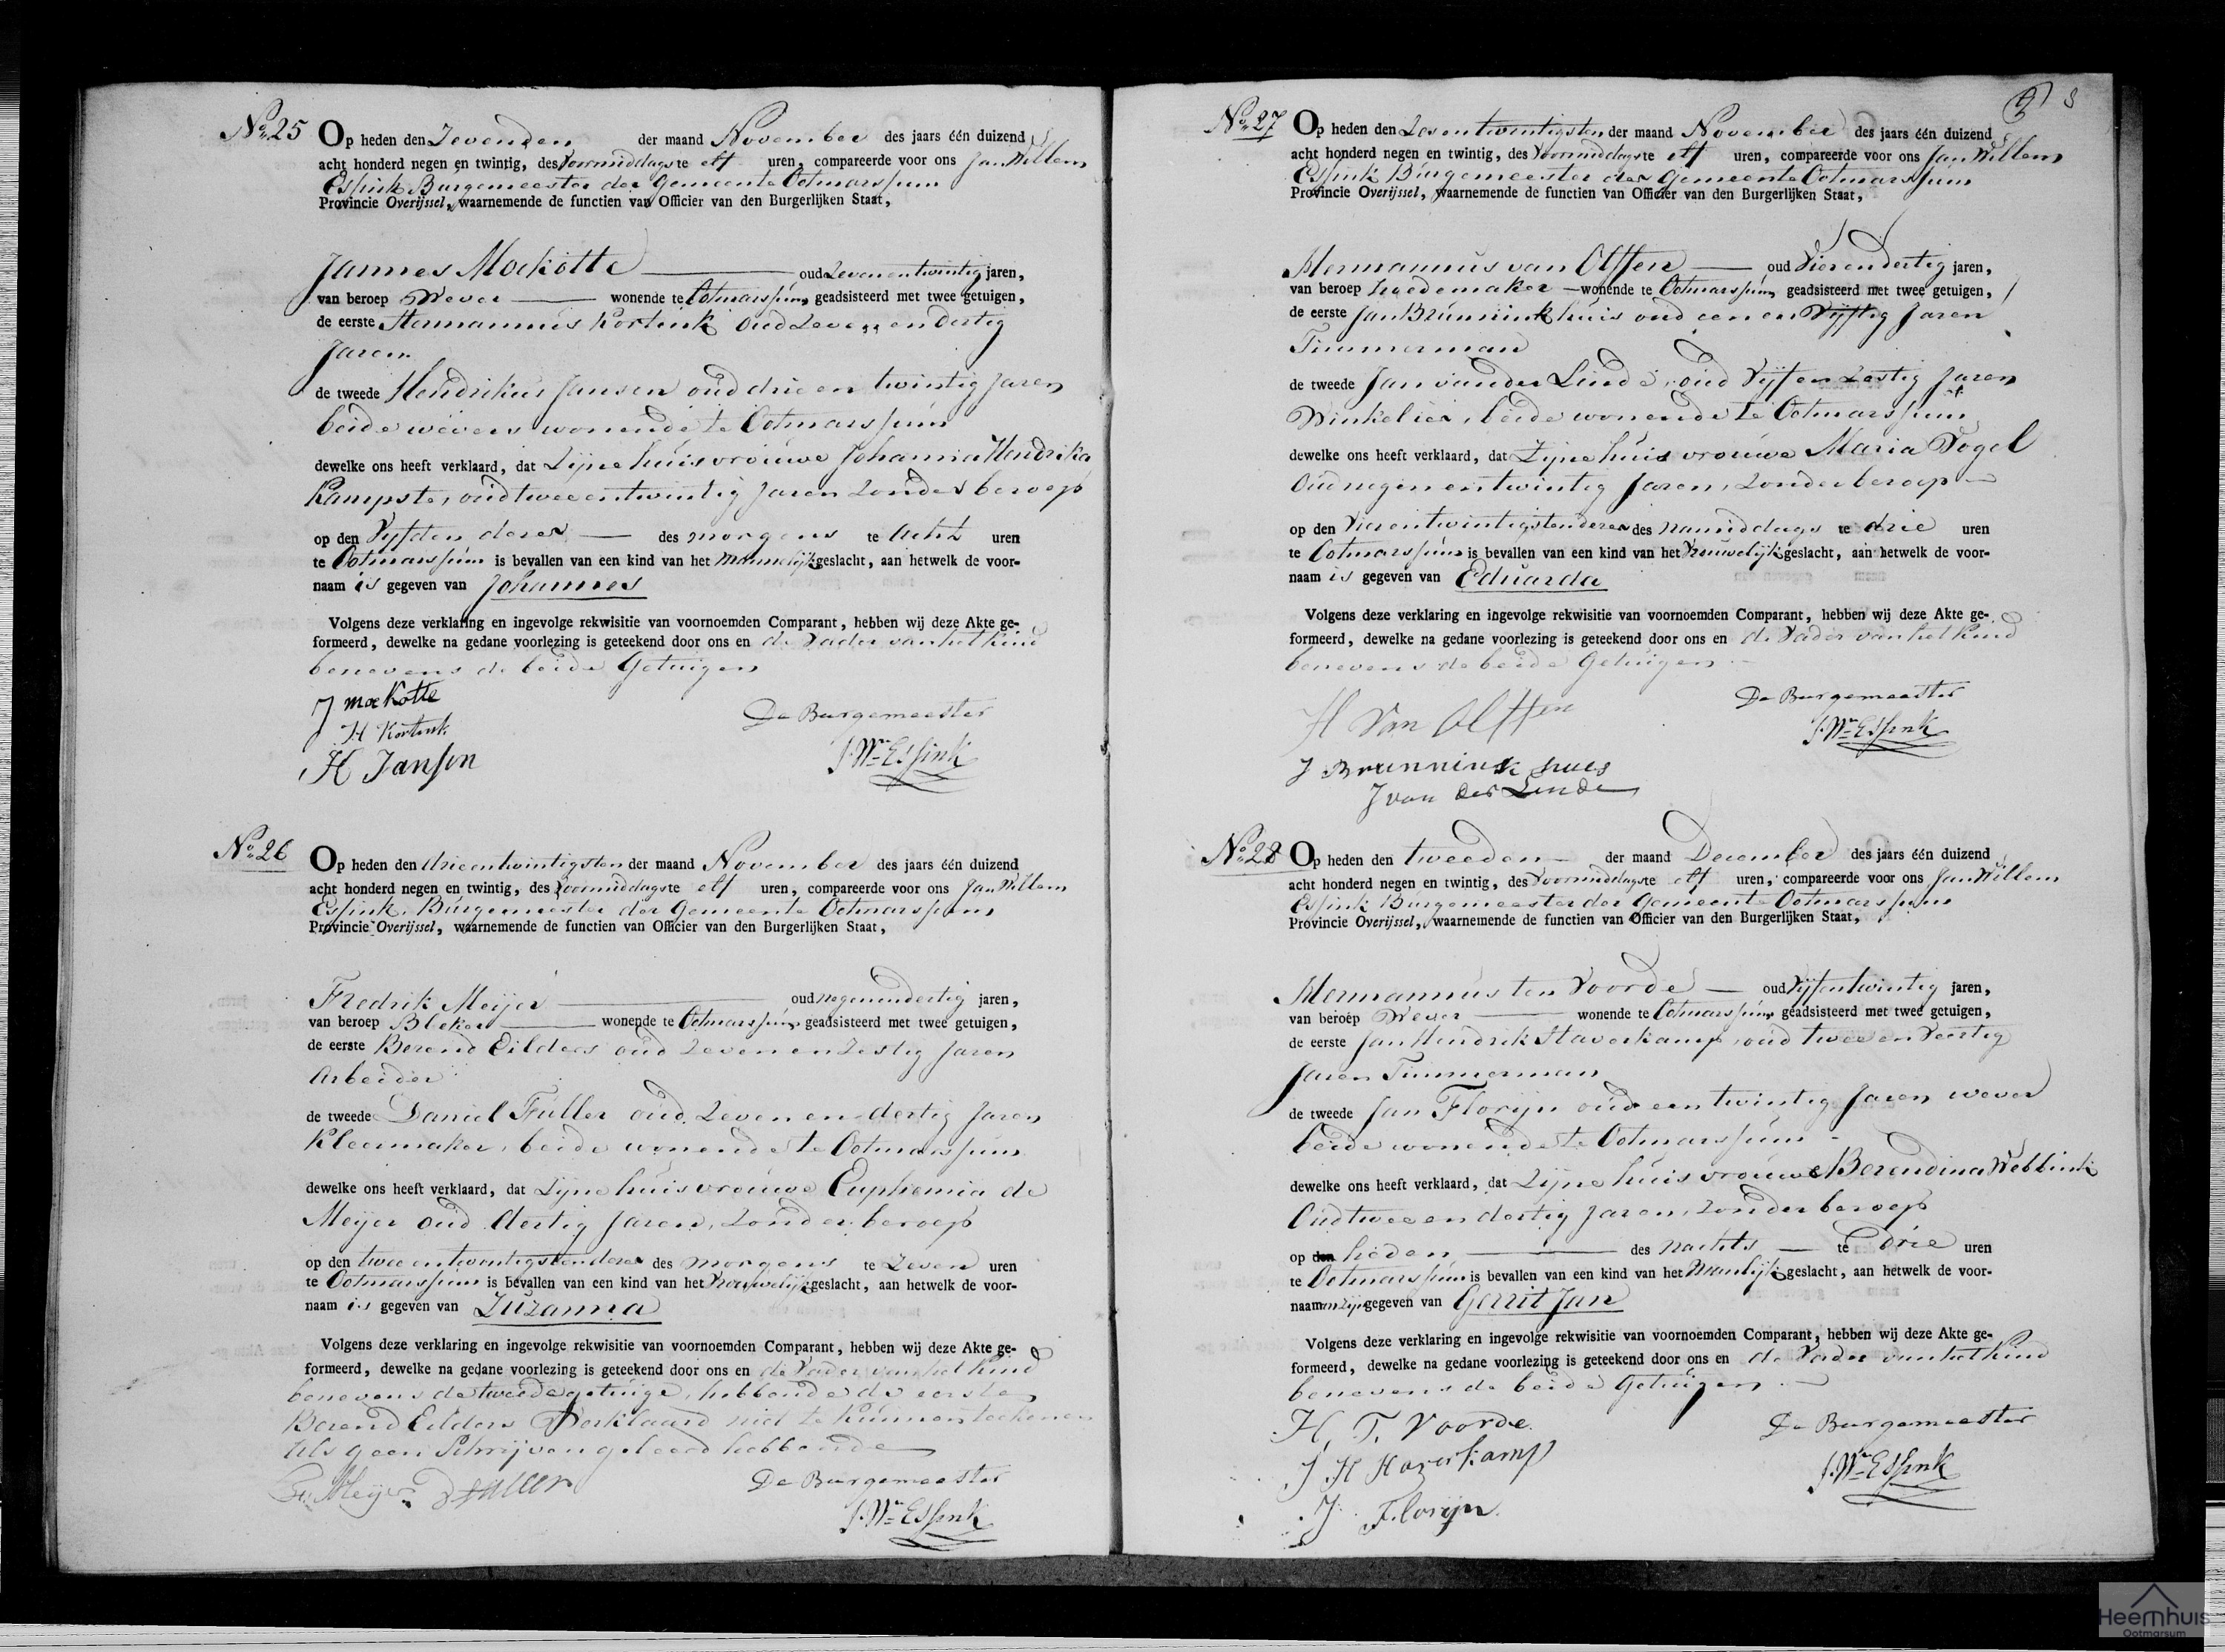 No. 25
Op heden den Zevenden der maand November des jaars één duizend
acht honderd negen en twintig, des Voormiddags te elf uren, compareerde voor ons Jan Willem
Essink Burgemeester der Gemeente Ootmarssum
Provincie Overijssel, waarnemende de functien van Officier van den Burgerlijken Staat,
Jannes Moekotte oud Zevenentwintig jaren,
van beroep Wever wonende te Ootmarssum, geadsisteerd met twee getuigen,
de eerste Hermannus Kortink oud Zeven en dertig
Jaren
de tweede Hendrikus Jansen oud drie en twintig Jaren
beide wevers wonende te Ootmarssum
dewelke ons heeft verklaard, dat Zijne huisvrouwe Johanna Hendrika
Kampste, oud twee entwintig Jaren Zonder beroep
op den Vyfden dezer des morgens te Acht uren
te Ootmarssum is bevallen van een kind van het Mannelijk geslacht, aan hetwelk de voor-
naam is gegeven van Johannes
Volgens deze verklaring en ingevolge rekwisitie van voornoemden Comparant, hebben wij deze Akte ge-
formeerd, dewelke na gedane voorlezing is geteekend door ons en de Vader van het Kind
benevens de beide Getuigen
J moekotte
H Kortink
H Jansen
De Burgemeester
J. Wm Essink
No. 26
Op heden den drieentwintigsten der maand November des jaars één duizend
acht honderd negen en twintig, des Voormiddags te elf uren, compareerde voor ons Jan Willem
Essink, Burgemeester der Gemeente Ootmarssum
Provincie Overijssel, waarnemende de functien van Officier van den Burgerlijken Staat,
Fredrik Meijer oud negenendertig jaren,
van beroep Bleker wonende te Ootmarssum, geadsisteerd met twee getuigen,
de eerste Berend Eilders oud Zeven en Zestig Jaren
Arbeider
de tweede Daniel Fuller oud Zeven en dertig Jaren
Kleermaker, beide wonende te Ootmarssum
dewelke ons heeft verklaard, dat Zijne huisvrouwe Euphemia de
Meyer oud dertig Jaren, Zonder beroep
op den twee entwintigsten dezer des morgens te Zeven uren
te Ootmarssum is bevallen van een kind van het Vrouwelijk geslacht, aan hetwelk de voor-
naam is gegeven van Zuzanna
Volgens deze verklaring en ingevolge rekwisitie van voornoemden Comparant, hebben wij deze Akte ge-
formeerd, dewelke na gedane voorlezing is geteekend door ons en de Vader van het Kind
benevens de tweede getuige, hebbende de eerste
Berend Eilders Verklaard niet te kunnen teekenen
Als geen Schrijven geleerd hebbende
Fr. Meijer D Fuller
De Burgemeester
J. Wm Essink
9
No. 27
Op heden den Zesentwintigsten der maand November des jaars één duizend
acht honderd negen en twintig, des Voormiddags te elf uren, compareerde voor ons Jan Willem
Essink Burgemeester der Gemeente Ootmarssum
Provincie Overijssel, waarnemende de functien van Officier van den Burgerlijken Staat,
Hermannus van Olffen oud Vierendertig jaren,
van beroep hoedemaker wonende te Ootmarssum, geadsisteerd met twee getuigen,
de eerste Jan Brunninkhuis oud een en Vijftig Jaren
Timmerman
de tweede Jan van der Linde, oud Vijf en Zestig Jaren
Winkelier, beide wonende te Ootmarssum
dewelke ons heeft verklaard, dat Zijne huisvrouwe Maria Vogel
Oud negen entwintig Jaren, Zonder beroep
op den Vierentwintigsten dezer des namiddags te drie uren
te Ootmarssum is bevallen van een kind van het Vrouwelijk geslacht, aan hetwelk de voor-
naam is gegeven van Eduarda
Volgens deze verklaring en ingevolge rekwisitie van voornoemden Comparant, hebben wij deze Akte ge-
formeerd, dewelke na gedane voorlezing is geteekend door ons en de Vader van het Kind
benevens de beide Getuigen
H Van Olffen
J Brunnink huis
J van der Linde
De Burgemeester
J. Wm Essink
No. 28
Op heden den tweeden der maand December des jaars één duizend
acht honderd negen en twintig, des Voormiddags te elf uren, compareerde voor ons Jan Willem
Essink Burgemeester der Gemeente Ootmarssum
Provincie Overijssel, waarnemende de functien van Officier van den Burgerlijken Staat,
Hermannus ten Voorde oud Vijfentwintig jaren,
van beroep Wever wonende te Ootmarssum, geadsisteerd met twee getuigen,
de eerste Jan Hendrik Haverkamp, oud twee en Veertig
Jaren Timmerman
de tweede Jan Florijn oud een twintig Jaren wever
beide wonende te Ootmarssum
dewelke ons heeft verklaard, dat Zijne huisvrouwe Berendina Webbink
Oud twee en dertig Jaren, Zonder beroep
op den heden des nachts te Drie uren
te Ootmarssum is bevallen van een kind van het Manlijk geslacht, aan hetwelk de voor-
naamen zijn gegeven van Gerrit Jan
Volgens deze verklaring en ingevolge rekwisitie van voornoemden Comparant, hebben wij deze Akte ge-
formeerd, dewelke na gedane voorlezing is geteekend door ons en de Vader van het Kind
benevens de beide Getuigen
H. T. Voorde
J H Haverkamp
J. Florijn
De Burgemeester
J. Wm Essink
Heemhuis
Ootmarsum